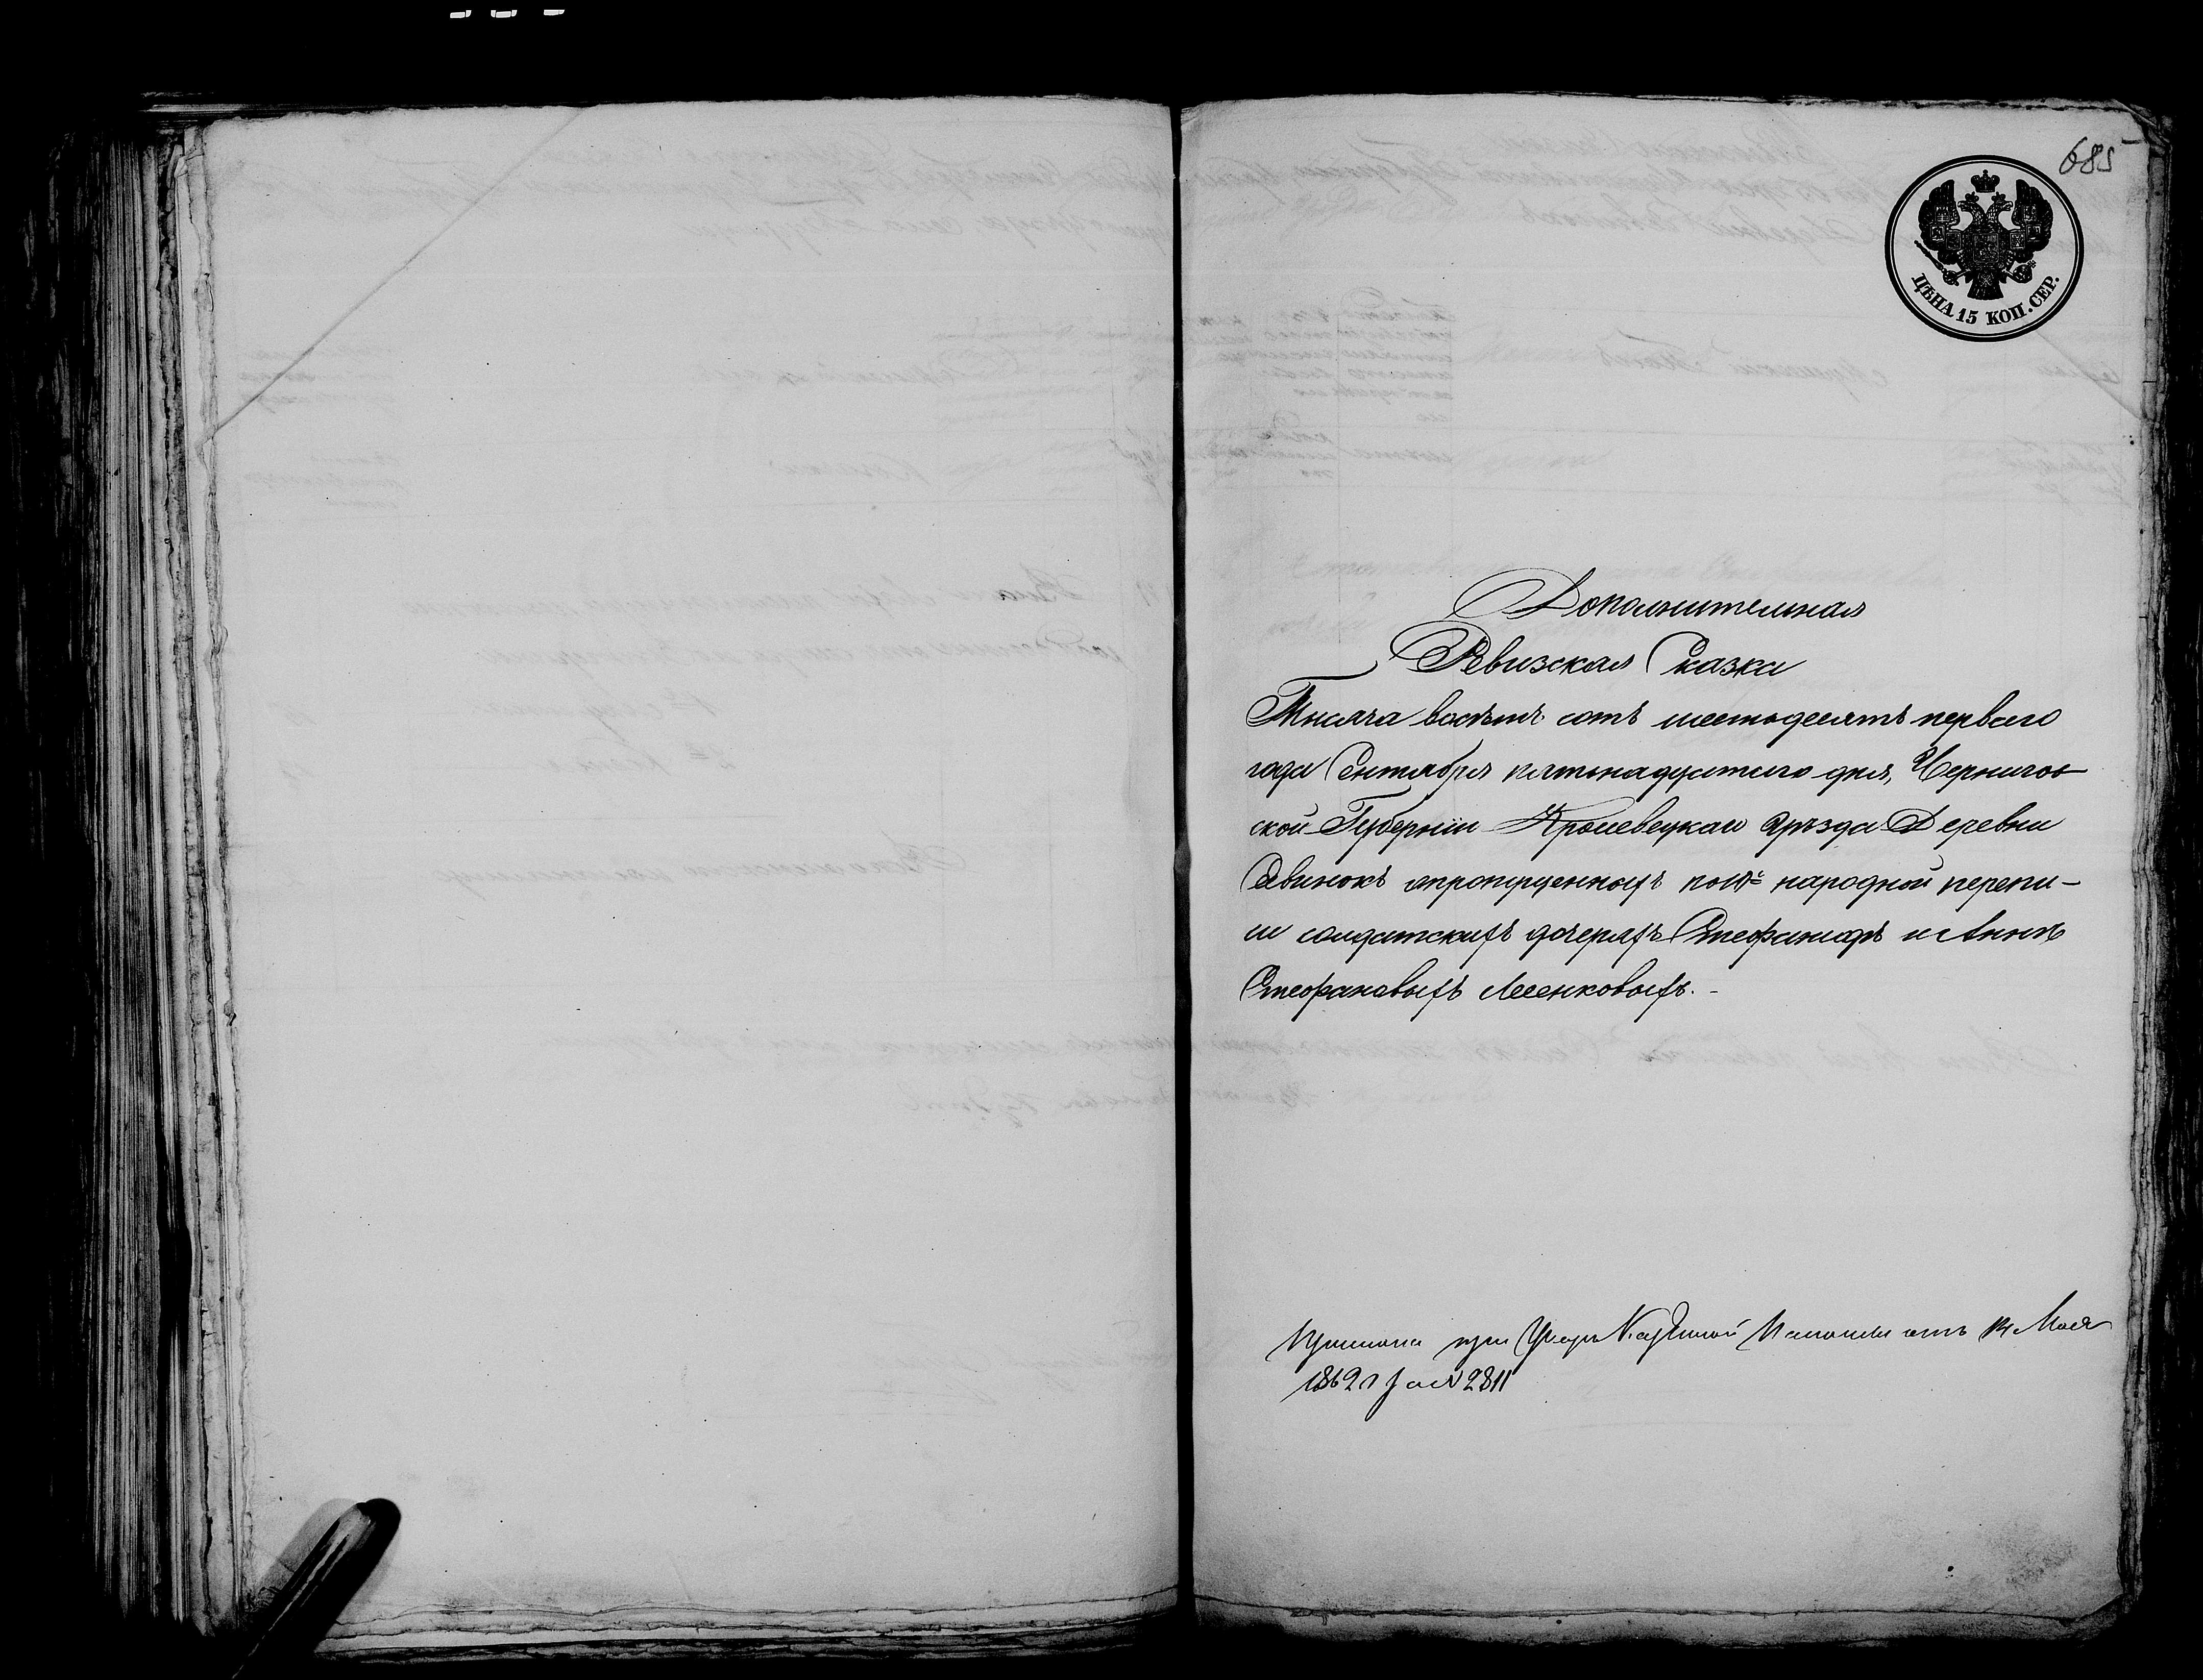 685
ЦѢНА 15 КОП. СЕР.
Дополнителная
Ревизская Сказка
Тысяча восѣмь сотъ шестьдесятъ перваго
года Сентября пятьнадцатаго дня, Чернигов
ской Губерніи Кролевецкаго Уѣзда Деревни
народной перепи-
си солдатскихъ дочеряхъ Стефанидѣ и Аннѣ
Стефановыхъ Лесенковыхъ.-
при Указѣ Казенной Палаты отъ 14 Мая
1862 г за № 2811